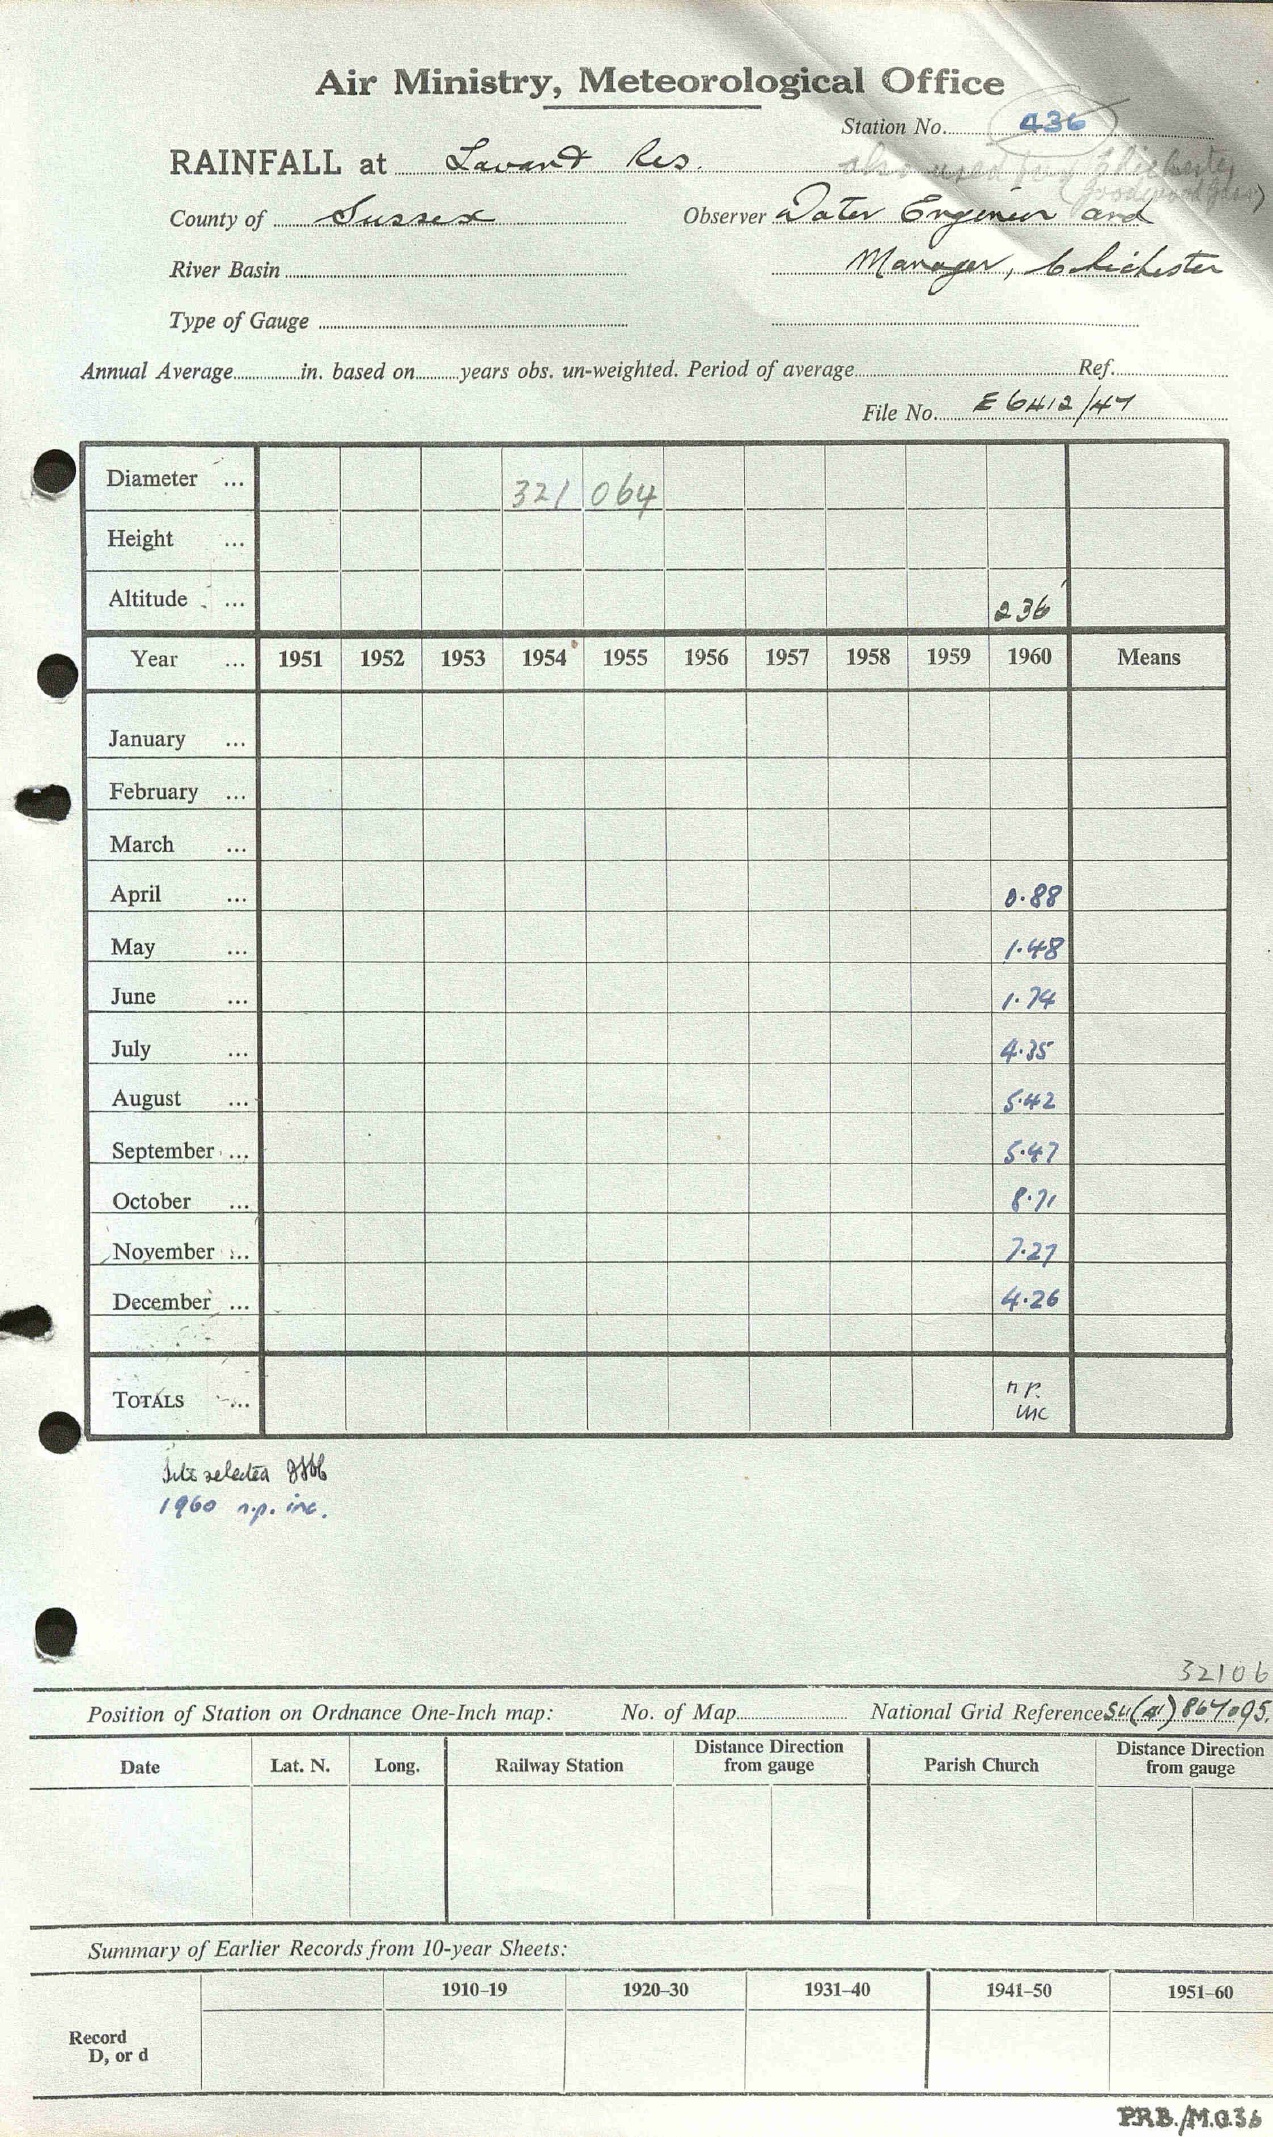 Air Ministry, Meteorological Office
Station No. 436
RAINFALL at Lavant Res.
also used for Chichester
County of Sussex Observer Water Engineer and
River Basin Manager, Chichester
Type of Gauge
Annual Average in. based on years obs. un-weighted. Period of average Ref.
File No. E6412/47
Diameter ... 321 064
Height ...
Altitude ... 236'
Year ... 1951 1952 1953 1954 1955 1956 1957 1958 1959 1960 Means
January ...
February ...
March ...
April ... 0.88
May ... 1.48
June ... 1.74
July ... 4.35
August ... 5.42
September ... 5.47
October ... 8.71
November ... 7.27
December ... 4.26
TOTALS ... n.p. inc
Site selected
1960 n.p. inc.
32106
Position of Station on Ordnance One-Inch map: No. of Map National Grid Reference SU(41) 867095.
Date Lat. N. Long. Railway Station Distance Direction from gauge Parish Church Distance Direction from gauge
Summary of Earlier Records from 10-year Sheets:
1910–19 1920–30 1931–40 1941–50 1951–60
Record
D, or d
P.R.B./M.O.36